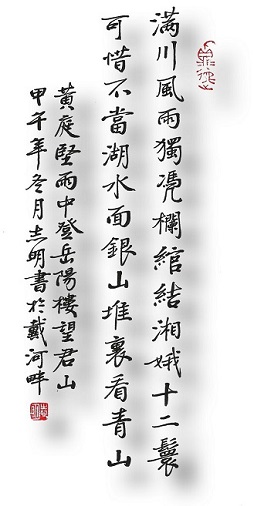 满川風雨獨凴欄綰結湘娥十二鬟
可惜不當湖水面銀山堆裏看青山
黄庭堅雨中登岳陽樓望君山
甲午年冬月志明書於戴河畔